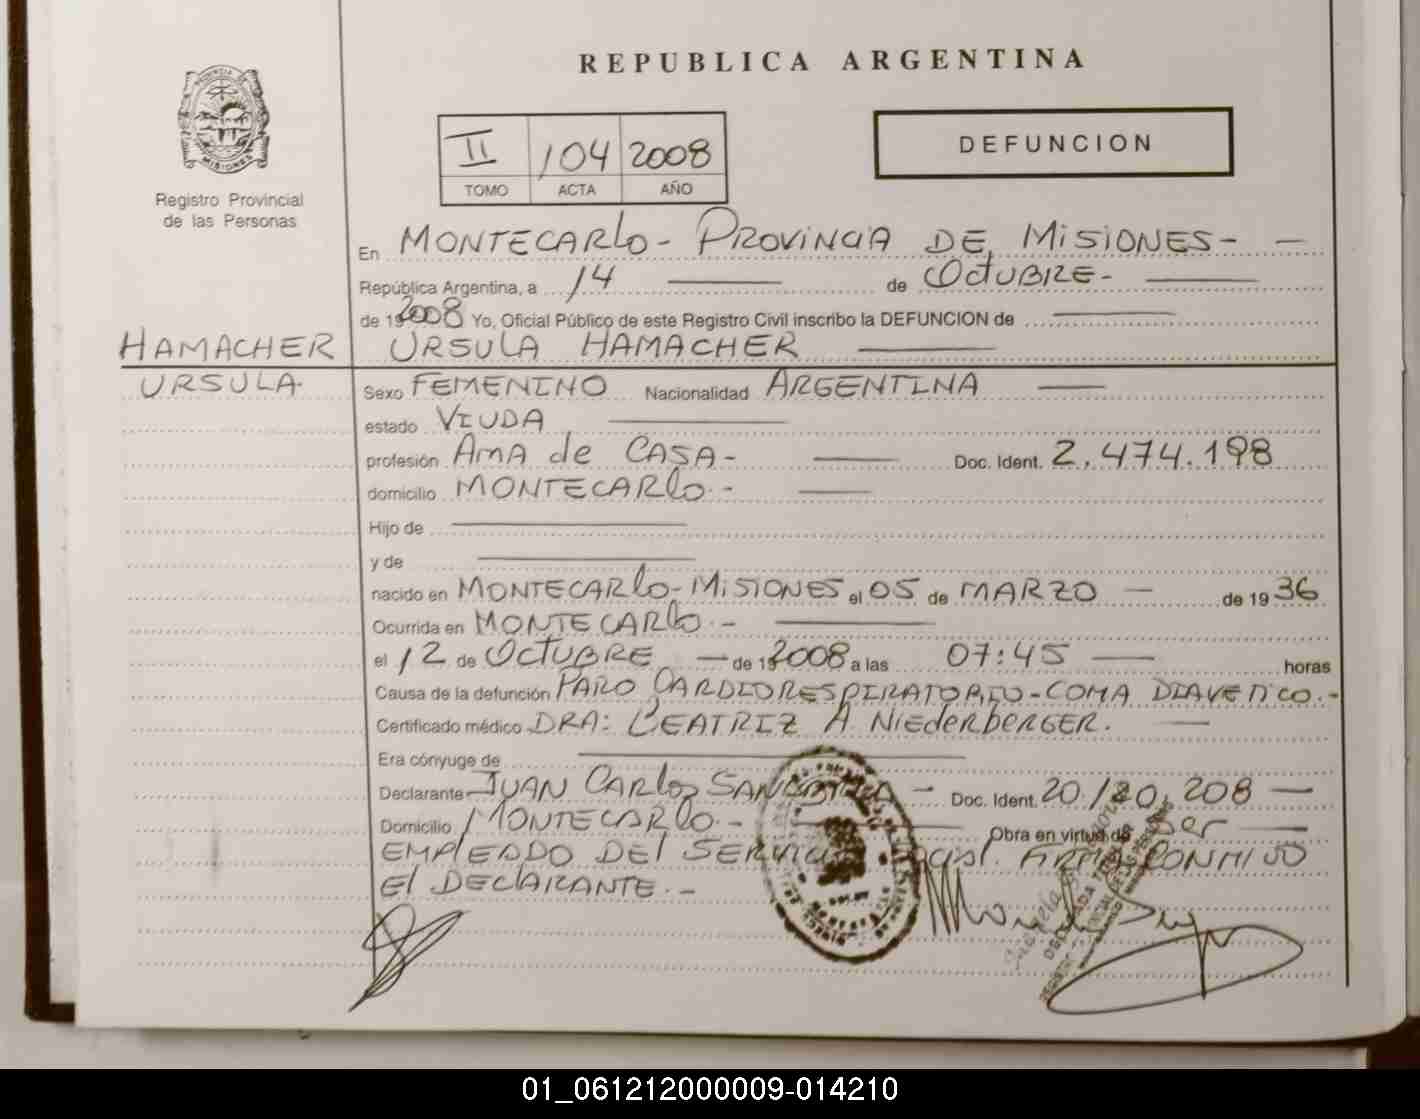 REPUBLICA ARGENTINA
PROVINCIA DE
MISIONES
Registro Provincial
de las Personas
II 104 2008
TOMO ACTA AÑO
DEFUNCION
En MONTECARLO - PROVINCIA DE MISIONES - -
República Argentina, a 14 de OCTUBRE -
de 192008 Yo, Oficial Público de este Registro Civil inscribo la DEFUNCION de
HAMACHER URSULA HAMACHER
URSULA Sexo FEMENINO Nacionalidad ARGENTINA
estado VIUDA
profesión AMA de CASA - Doc. Ident. 2.474.198
domicilio MONTECARLO. -
Hijo de
y de
nacido en MONTECARLO - MISIONES el 05 de MARZO - de 1936
Ocurrida en MONTECARLO. -
el 12 de OCTUBRE - de 192008 a las 07:45 horas
Causa de la defunción PARO CARDIORESPIRATORIO - COMA DIAVETICO. -
Certificado médico DRA: BEATRIZ A NIEDERBERGER.
Era cónyuge de
Declarante JUAN CARLOS Doc. Ident. 20.120.208
Domicilio MONTECARLO. - Obra en virtud de SER
EMPLEADO DEL FIRMA CONMIGO
El DECLARANTE. -
01_061212000009-014210